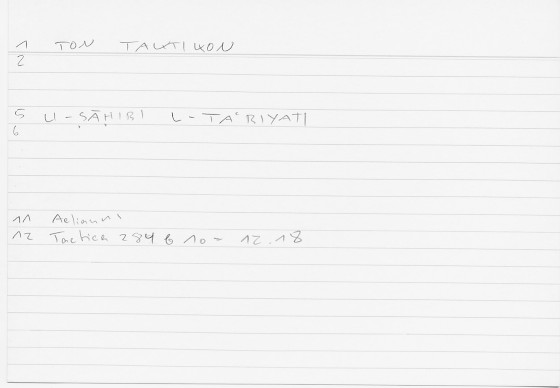 1 TON TAKTIKON
2
5 LI-ṢĀḤIBI L-TAʿBIYATI
6
11 Aelianus
12 Tactica 284 b 10 - 12.18